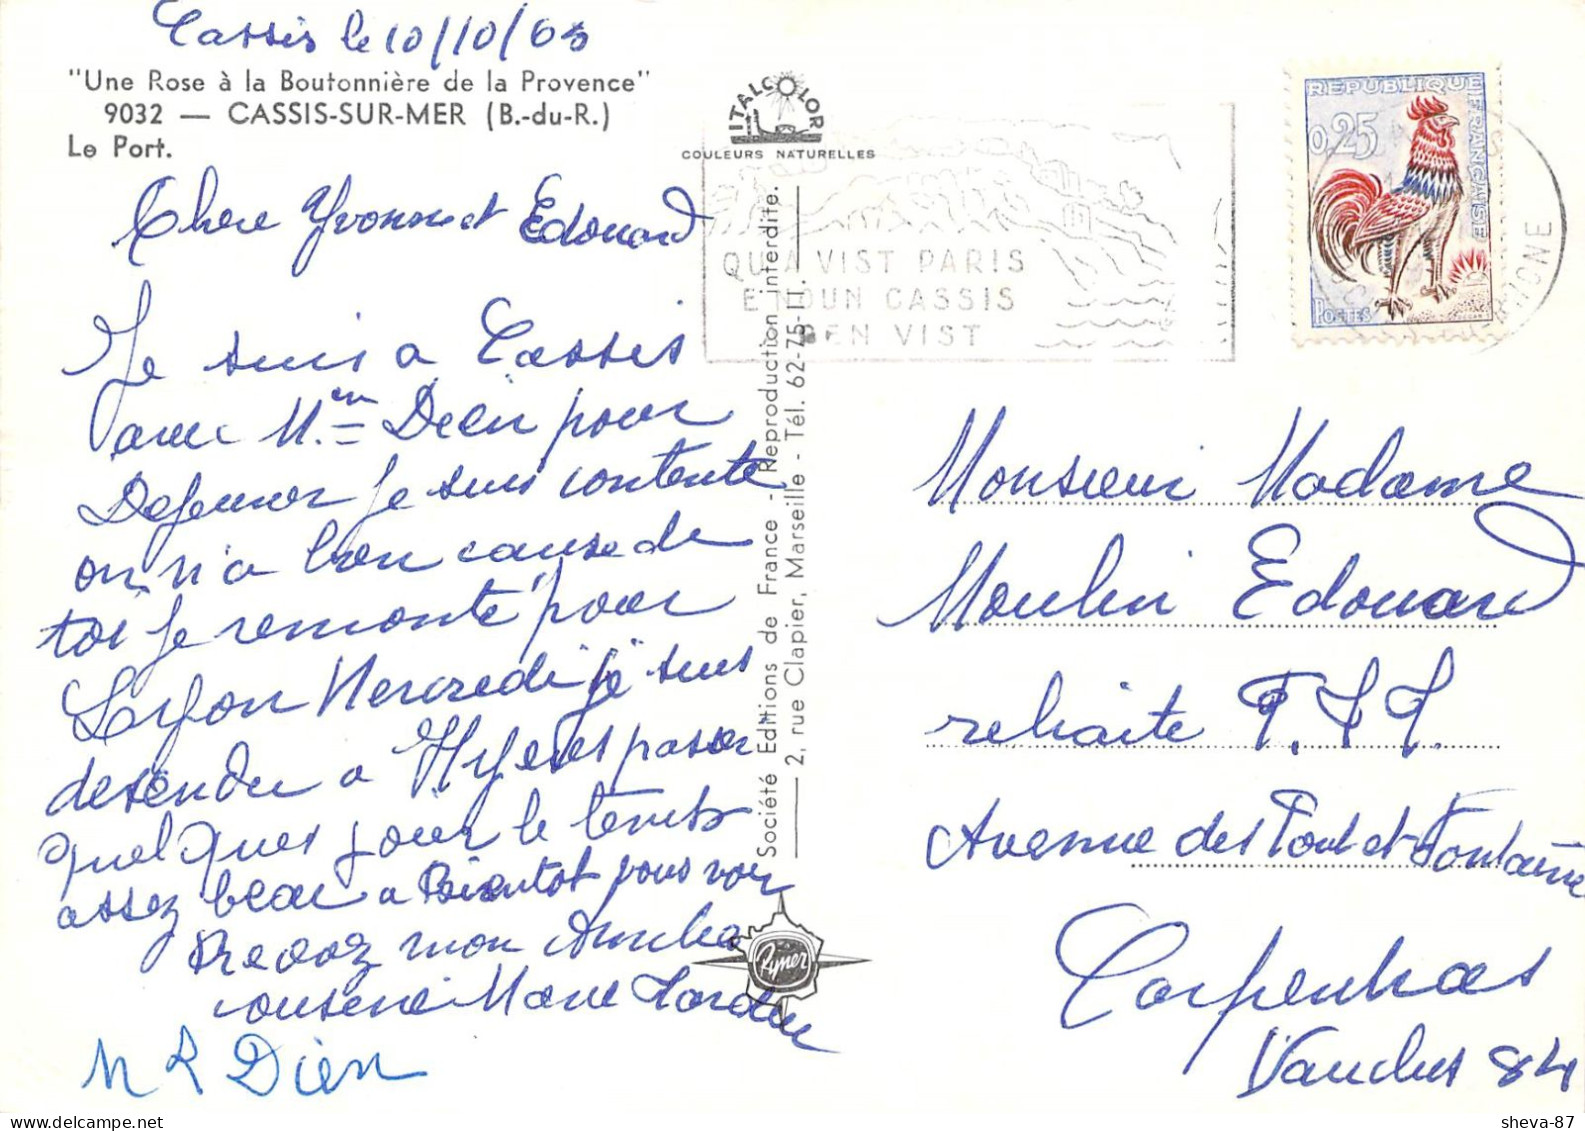 Cassis le 10/10/65
"Une Rose à la Boutonnière de la Provence"
9032 — CASSIS-SUR-MER (B.-du-R.)
Le Port.
ITALCOLOR
COULEURS NATURELLES
REPUBLIQUE FRANÇAISE
0,25
POSTES
QU'A VIST PARIS
E NOUN CASSIS
REN VIST
Chere Yvonne et Edouard
Je suis a Cassis
avec M.en Dien pour
Dejeuner je suis contente
on n'a bien cause de
toi je remonte pour
Lyon Mercredi je suis
desendu a Hyeres passer
quelques jour le temps
assez beau a Bientot vous voir
Recevez mon
Marie
M R Dien
Société Editions de France - Reproduction interdite.
2, rue Clapier, Marseille - Tél. 62-75-11.
Rymer
Monsieur Madame
Moulin Edouard
retraite P.T.T.
Avenue des Pont et Fontaine
Carpentras
Vaucluse 84
sheva-87